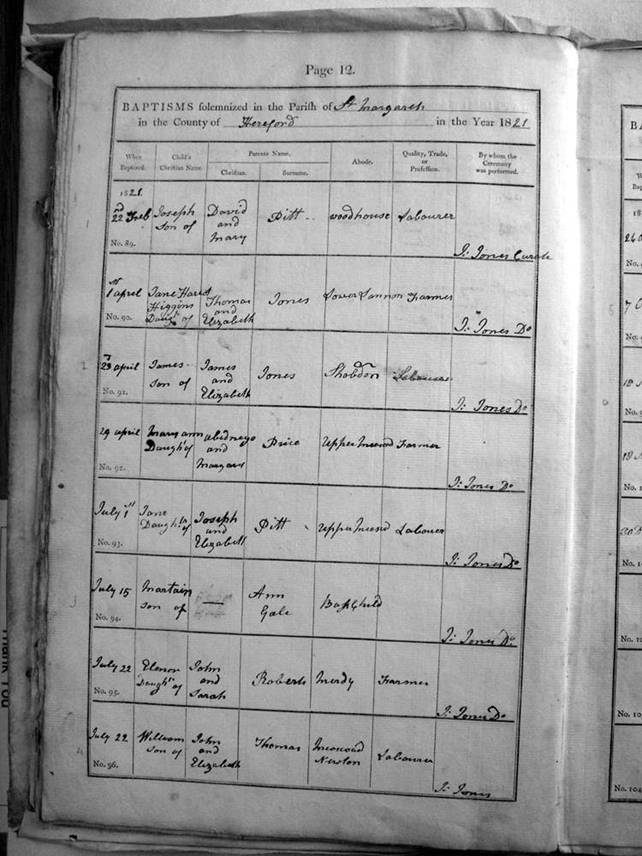 Page 12.
BAPTISMS solemnized in the Parish of St Margarets
in the County of Hereford in the Year 1821
When Baptized. Child's Christian Name. Parents Name. Christian. Surname. Abode. Quality, Trade, or Profession. By whom the Ceremony was performed.
1821.
22nd Feb Joseph son of David and Mary Pitt woodhouse Labourer
No. 89. J: Jones Curate
1st April Jane Harriet Higgins Daugh.r of Thomas and Elizabeth Jones Farmer
No. 90. J: Jones Do
23 April James son of James and Elizabeth Jones Shobdon Labourer
No. 91. J: Jones Do
29 April Mary ann Daugh.r of abidnego and Margaret Price Upper Farmer
No. 92. J: Jones Do
July 1st Jane Daugh.tr of Joseph and Elizabeth Pitt Upper Labourer
No. 93. J: Jones Do
July 15 Martain son of — Ann Gale Base Child
No. 94. J: Jones Do
July 22 Elenor Daugh.r of John and Sarah Roberts Merdy Farmer
No. 95. J: Jones Do
July 22 William son of John and Elizabeth Thomas Newton Labourer
No. 96. J: Jones